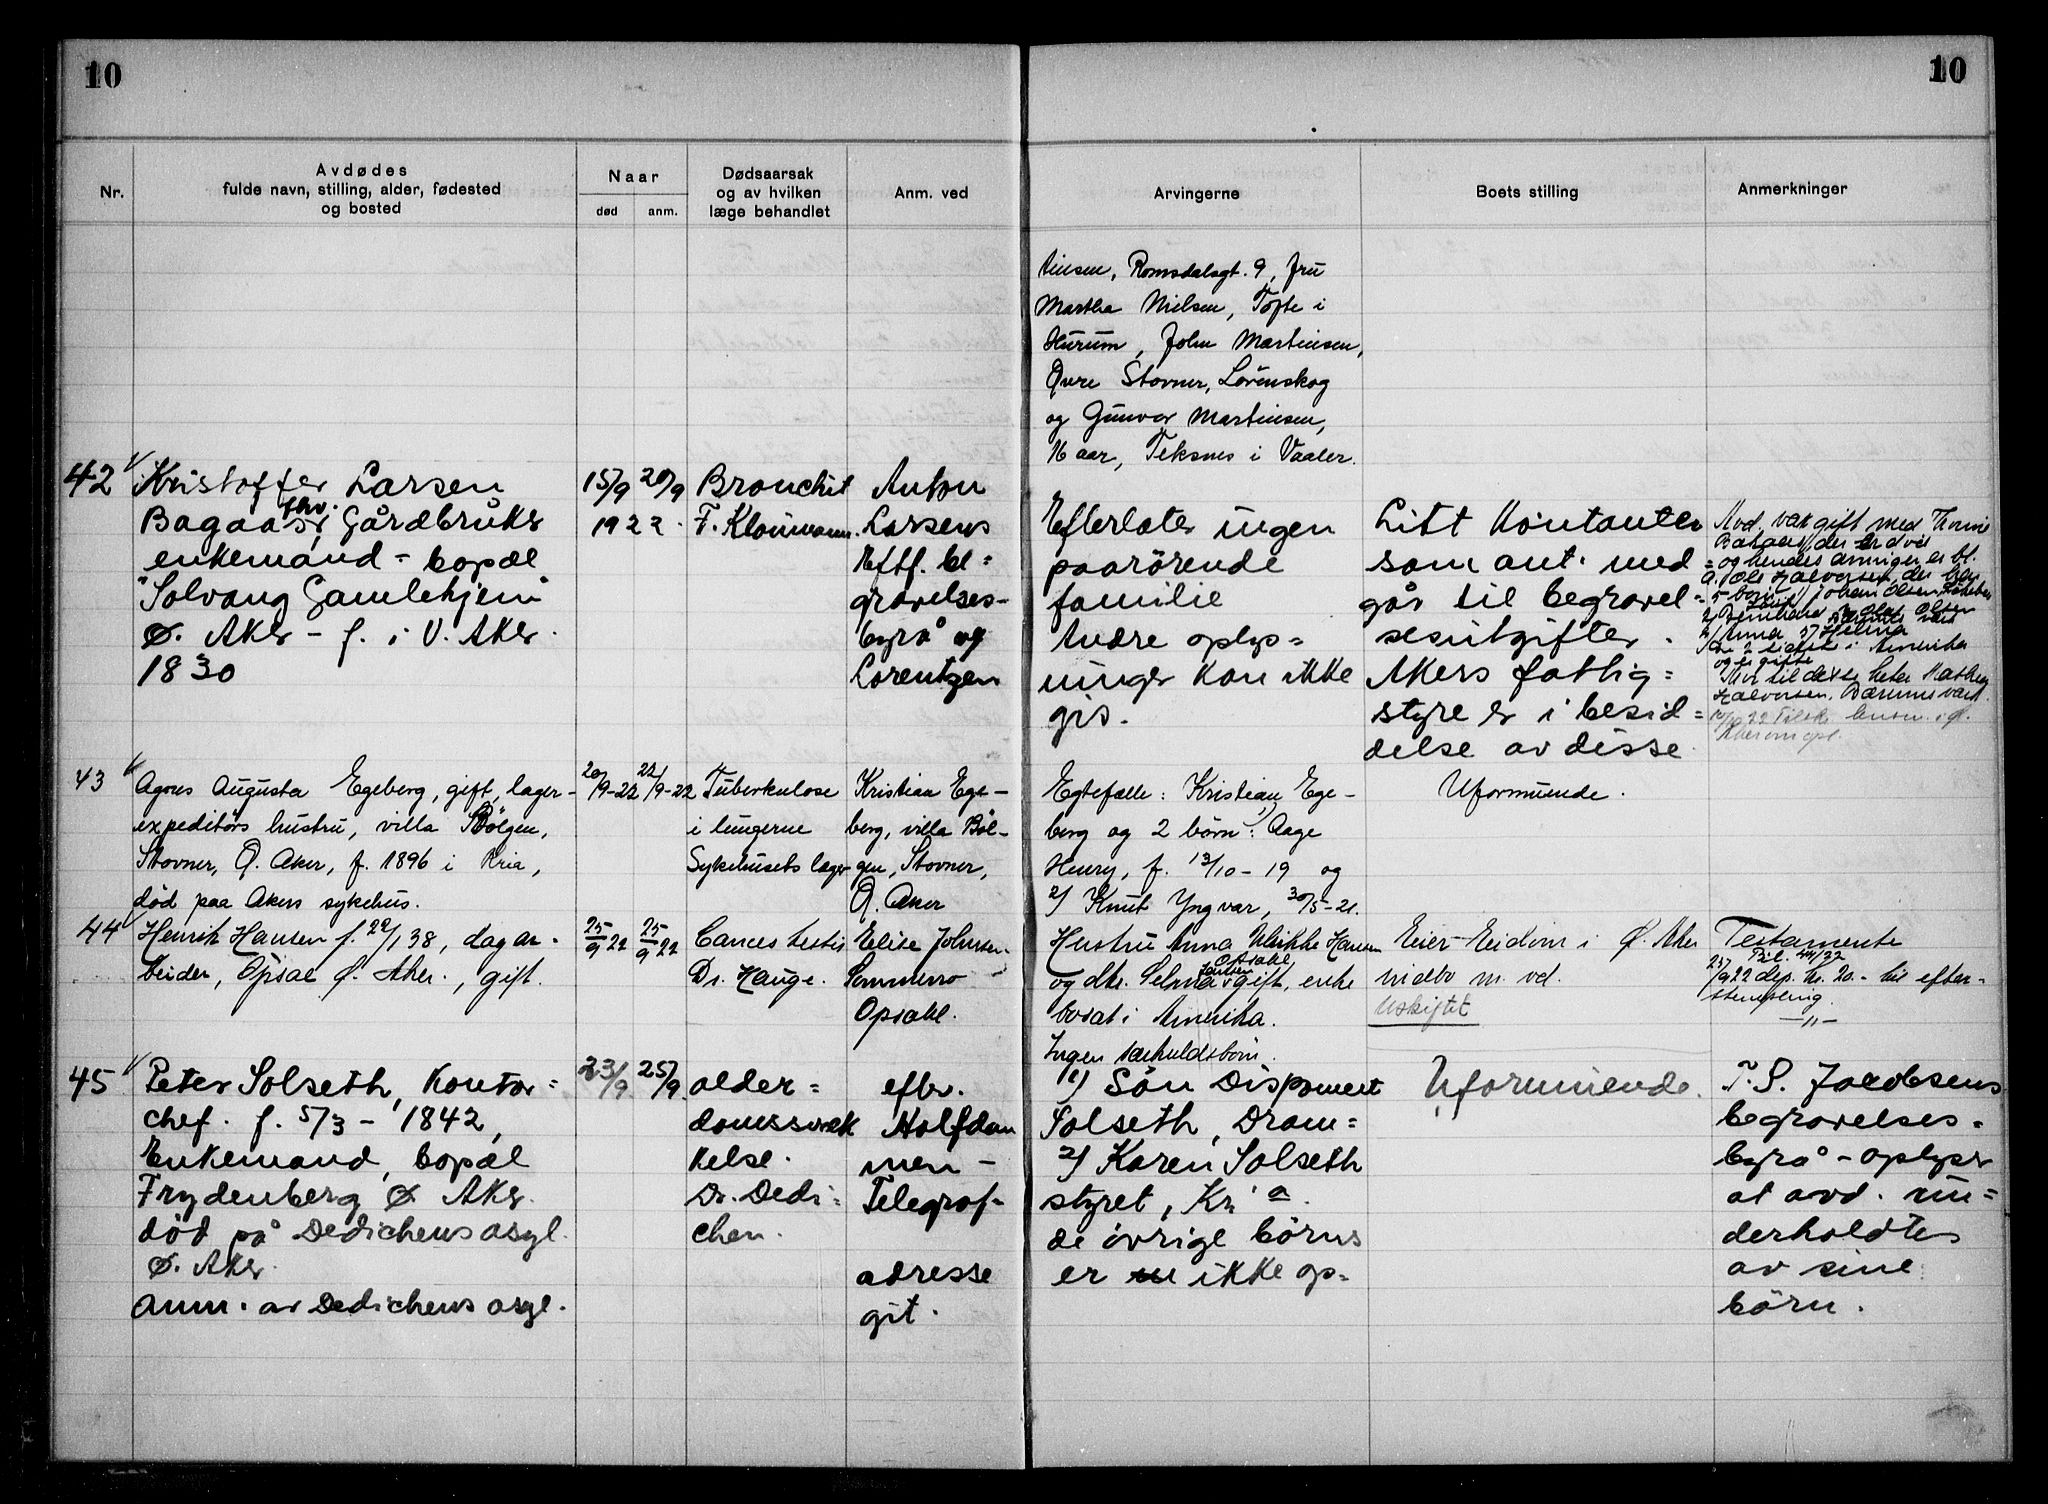 10
10
Nr.
Avdødes
fulde navn, stilling, alder, fødested
og bosted
Naar
død
anm.
Dødsaarsak
og av hvilken
læge behandlet
Anm. ved
Arvingerne
Boets stilling
Anmerkninger
tinsen, Romsdalsgt. 9, fru
Martha Nielsen, Tofte i
Hurum, John Martinsen,
Øvre Stovner, Lørenskog
og Gunvor Martinsen,
16 aar, Teksnes i Vaaler.
42
Kristoffer Larsen
Bagaas, fhv. Gårdbruker
enkemand - bopæl
"Solvang Gamlehjem"
Ø. Aker - f. i V. Aker.
1830
15/9 20/9
1922.
Bronchit
F. Kloumann.
Anton
Larsens
Eftf. be=
gravelses-
byrå og
Lorentzen
Efterlater ingen
paarørende
familie
Andre oplys=
ninger kan ikke
gis.
Litt Kontanter
som ant. med=
går til begravel=
sesutgifter.
Akers fattig=
styre er i besid=
delse av disse.
Avd. var gift med
der er død
og hendes arvinger er bl.
a. Halvorsen, der har
5 børn: 1/ Johan Olsen
Olsen
Anna 5/ Helma
De 2 sidste i Amerika
og er gifte
Mor til disse heter Mathea
Halvorsen, Bærumsvei
43
Agnes Augusta Egeberg, gift, lager-
expeditørs hustru, villa Bølgen,
Stovner, Ø. Aker, f. 1896 i Kria,
død paa Akers sykehus.
20/9-22 22/9-22
Tuberkulose
i lungerne
Sykehusets læger
Kristian Ege-
berg, villa Bøl-
gen, Stovner,
Ø. Aker
Egtefælle: Kristian Ege-
berg og 2 børn: 1) Aage
Henry, f. 13/10-19 og
2) Knut Yngvar, 30/5-21.
Uformuende.
44
Henrik Hansen f. 22/1 38, dagar-
beider, Opsal Ø. Aker., gift.
25/9 22 25/9 22
Cancer testis
Dr. Hauge.
Elise Johnsen
Sommerro
Opsahl.
Hustru Anna Ulrikke Hansen
Opsahl,
og dtr. Selma gift, enke
bosat i Amerika.
Ingen særkuldsbørn.
Eier Eiendom i Ø. Aker
indbo m. vd.
Uskiftet
Testamente
Bil. 44/22
23/9 22 dep. kr. 20.- til efter-
stempling.
-"-
45
Peter Solseth, Kontor=
chef. f. 5/3 - 1842,
Enkemand, bopæl
Frydenberg Ø Aker.
død på Dedichens asyl.
Ø. Aker.
Anm. av Dedichens asyl.
23/9. 25/9.
alder=
domssvæk
kelse.
Dr. Dedi=
chen.
efbr.
Halfdan
men-
Telegraf-
adresse
git.
1) Søn Disponent
Solseth, Dram=
2) Karen Solseth
styret, Kr.a.
de øvrige børns
er ikke op=
Uformuende.
T. S. Jacobsens
begravelses=
byrå - oplyser
at avd. un=
derholdtes
av sine
børn.